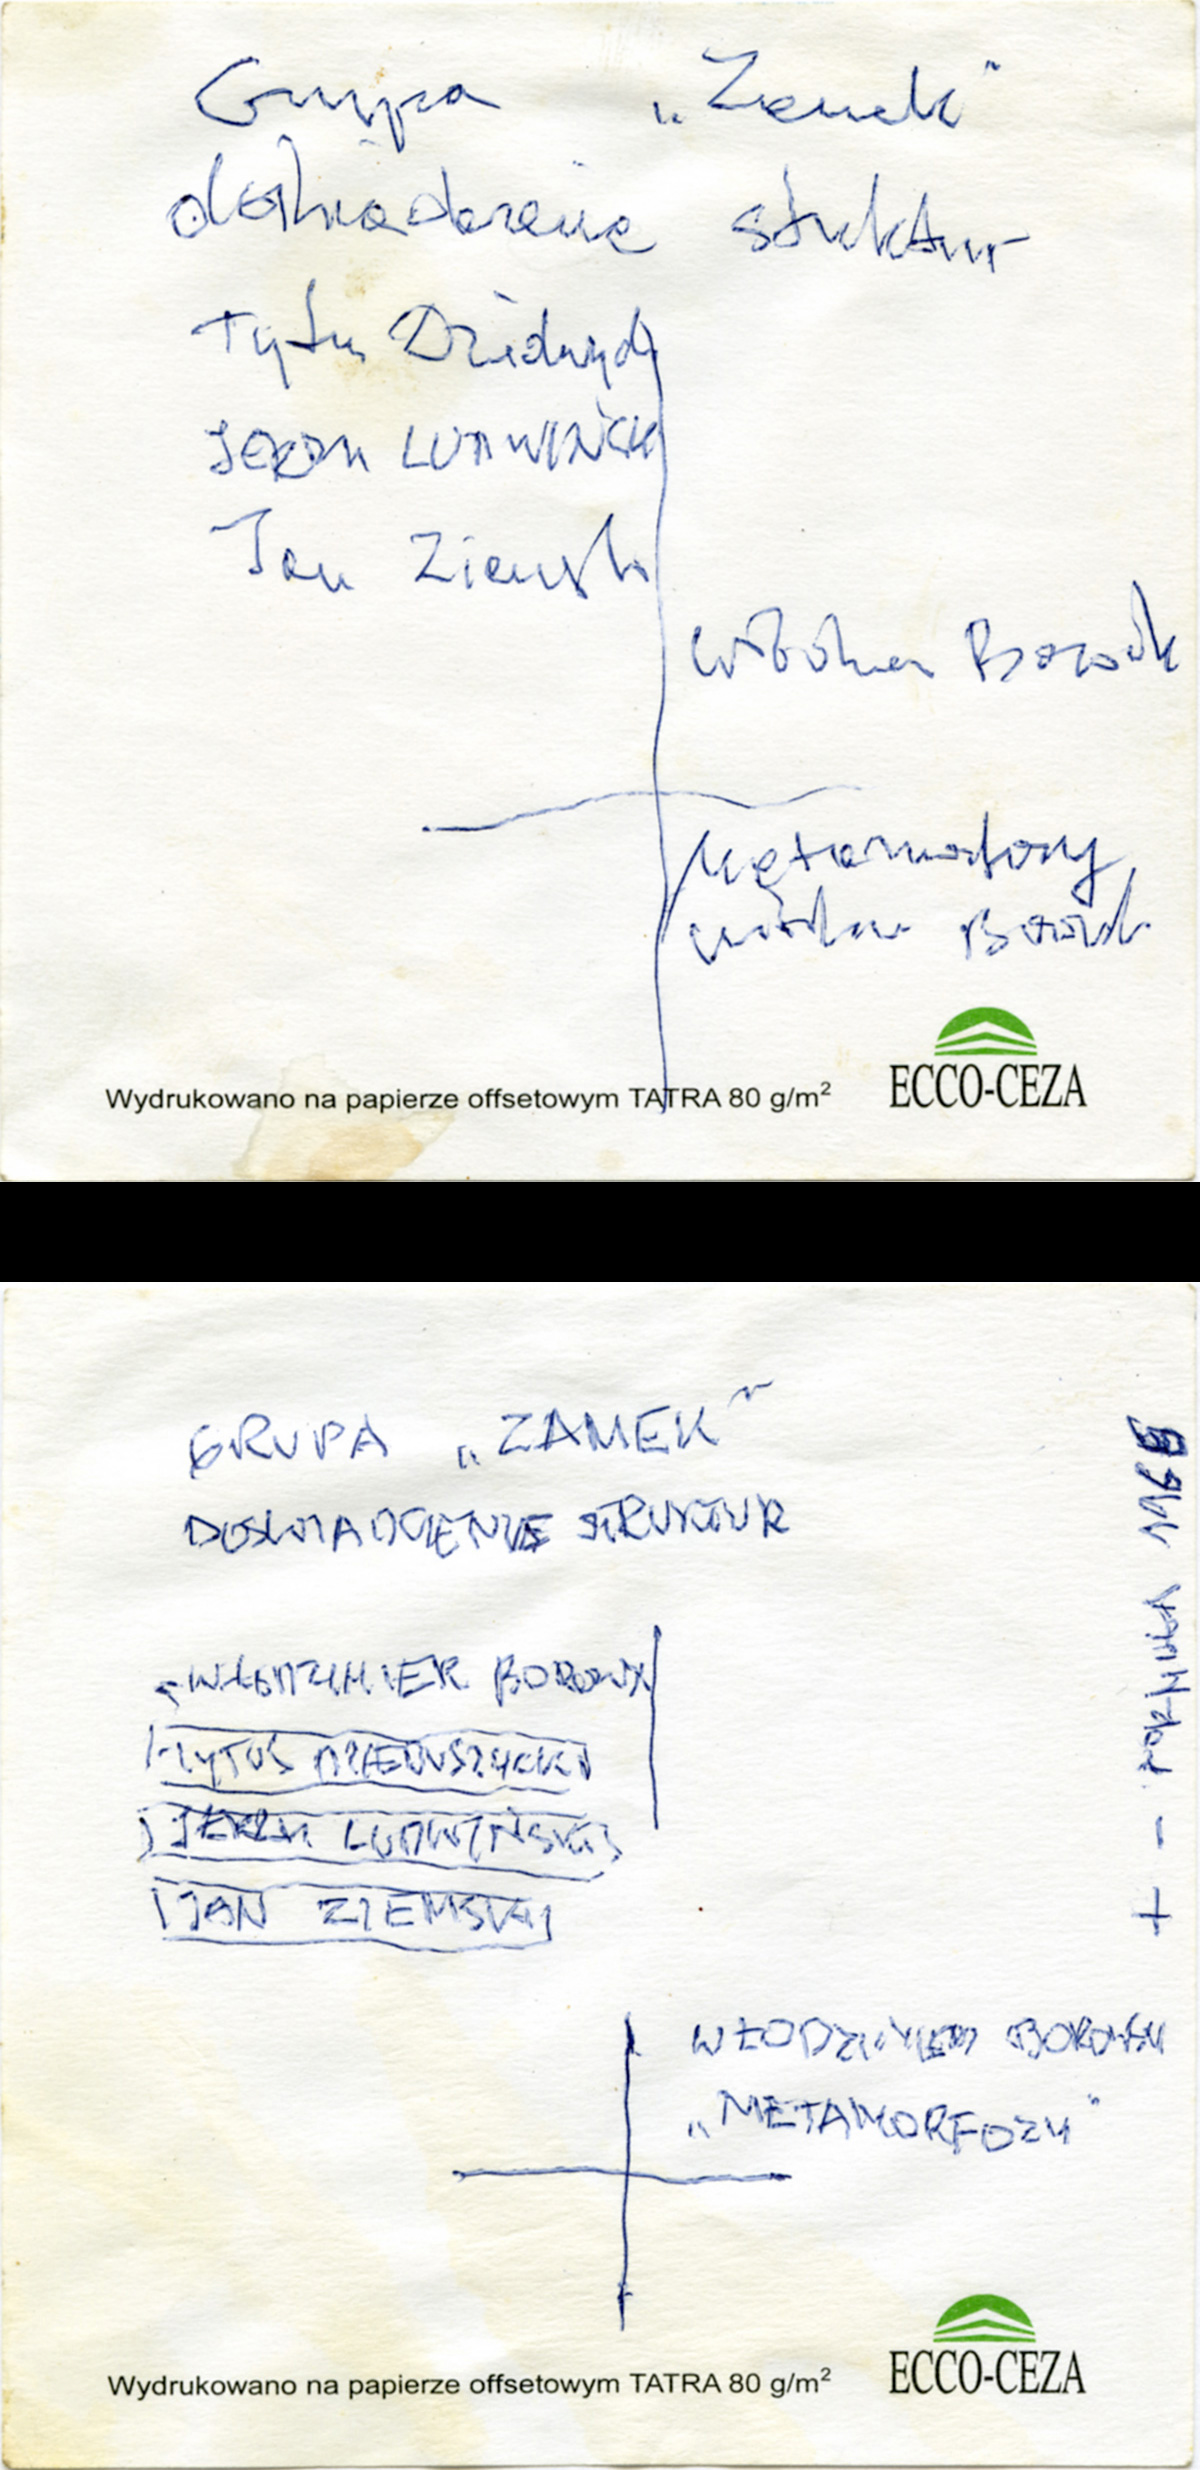 Grupa „Zamek"
doświadczenie struktur
Tytus Dzieduszycki
JERZY LUDWIŃSKI
Jan Ziemski
Borowski
Metamorfozy
Borowski
Wydrukowano na papierze offsetowym TATRA 80 g/m²
ECCO-CEZA
GRUPA „ZAMEK"
DOŚWIADCZENIE STRUKTUR
WŁODZIMIERZ BOROWSKI
TYTUS DZIEDUSZYCKI
JERZY LUDWIŃSKI
JAN ZIEMSKI
+ - FORMUŁA
WŁODZIMIERZ BOROWSKI
„METAMORFOZY"
Wydrukowano na papierze offsetowym TATRA 80 g/m²
ECCO-CEZA